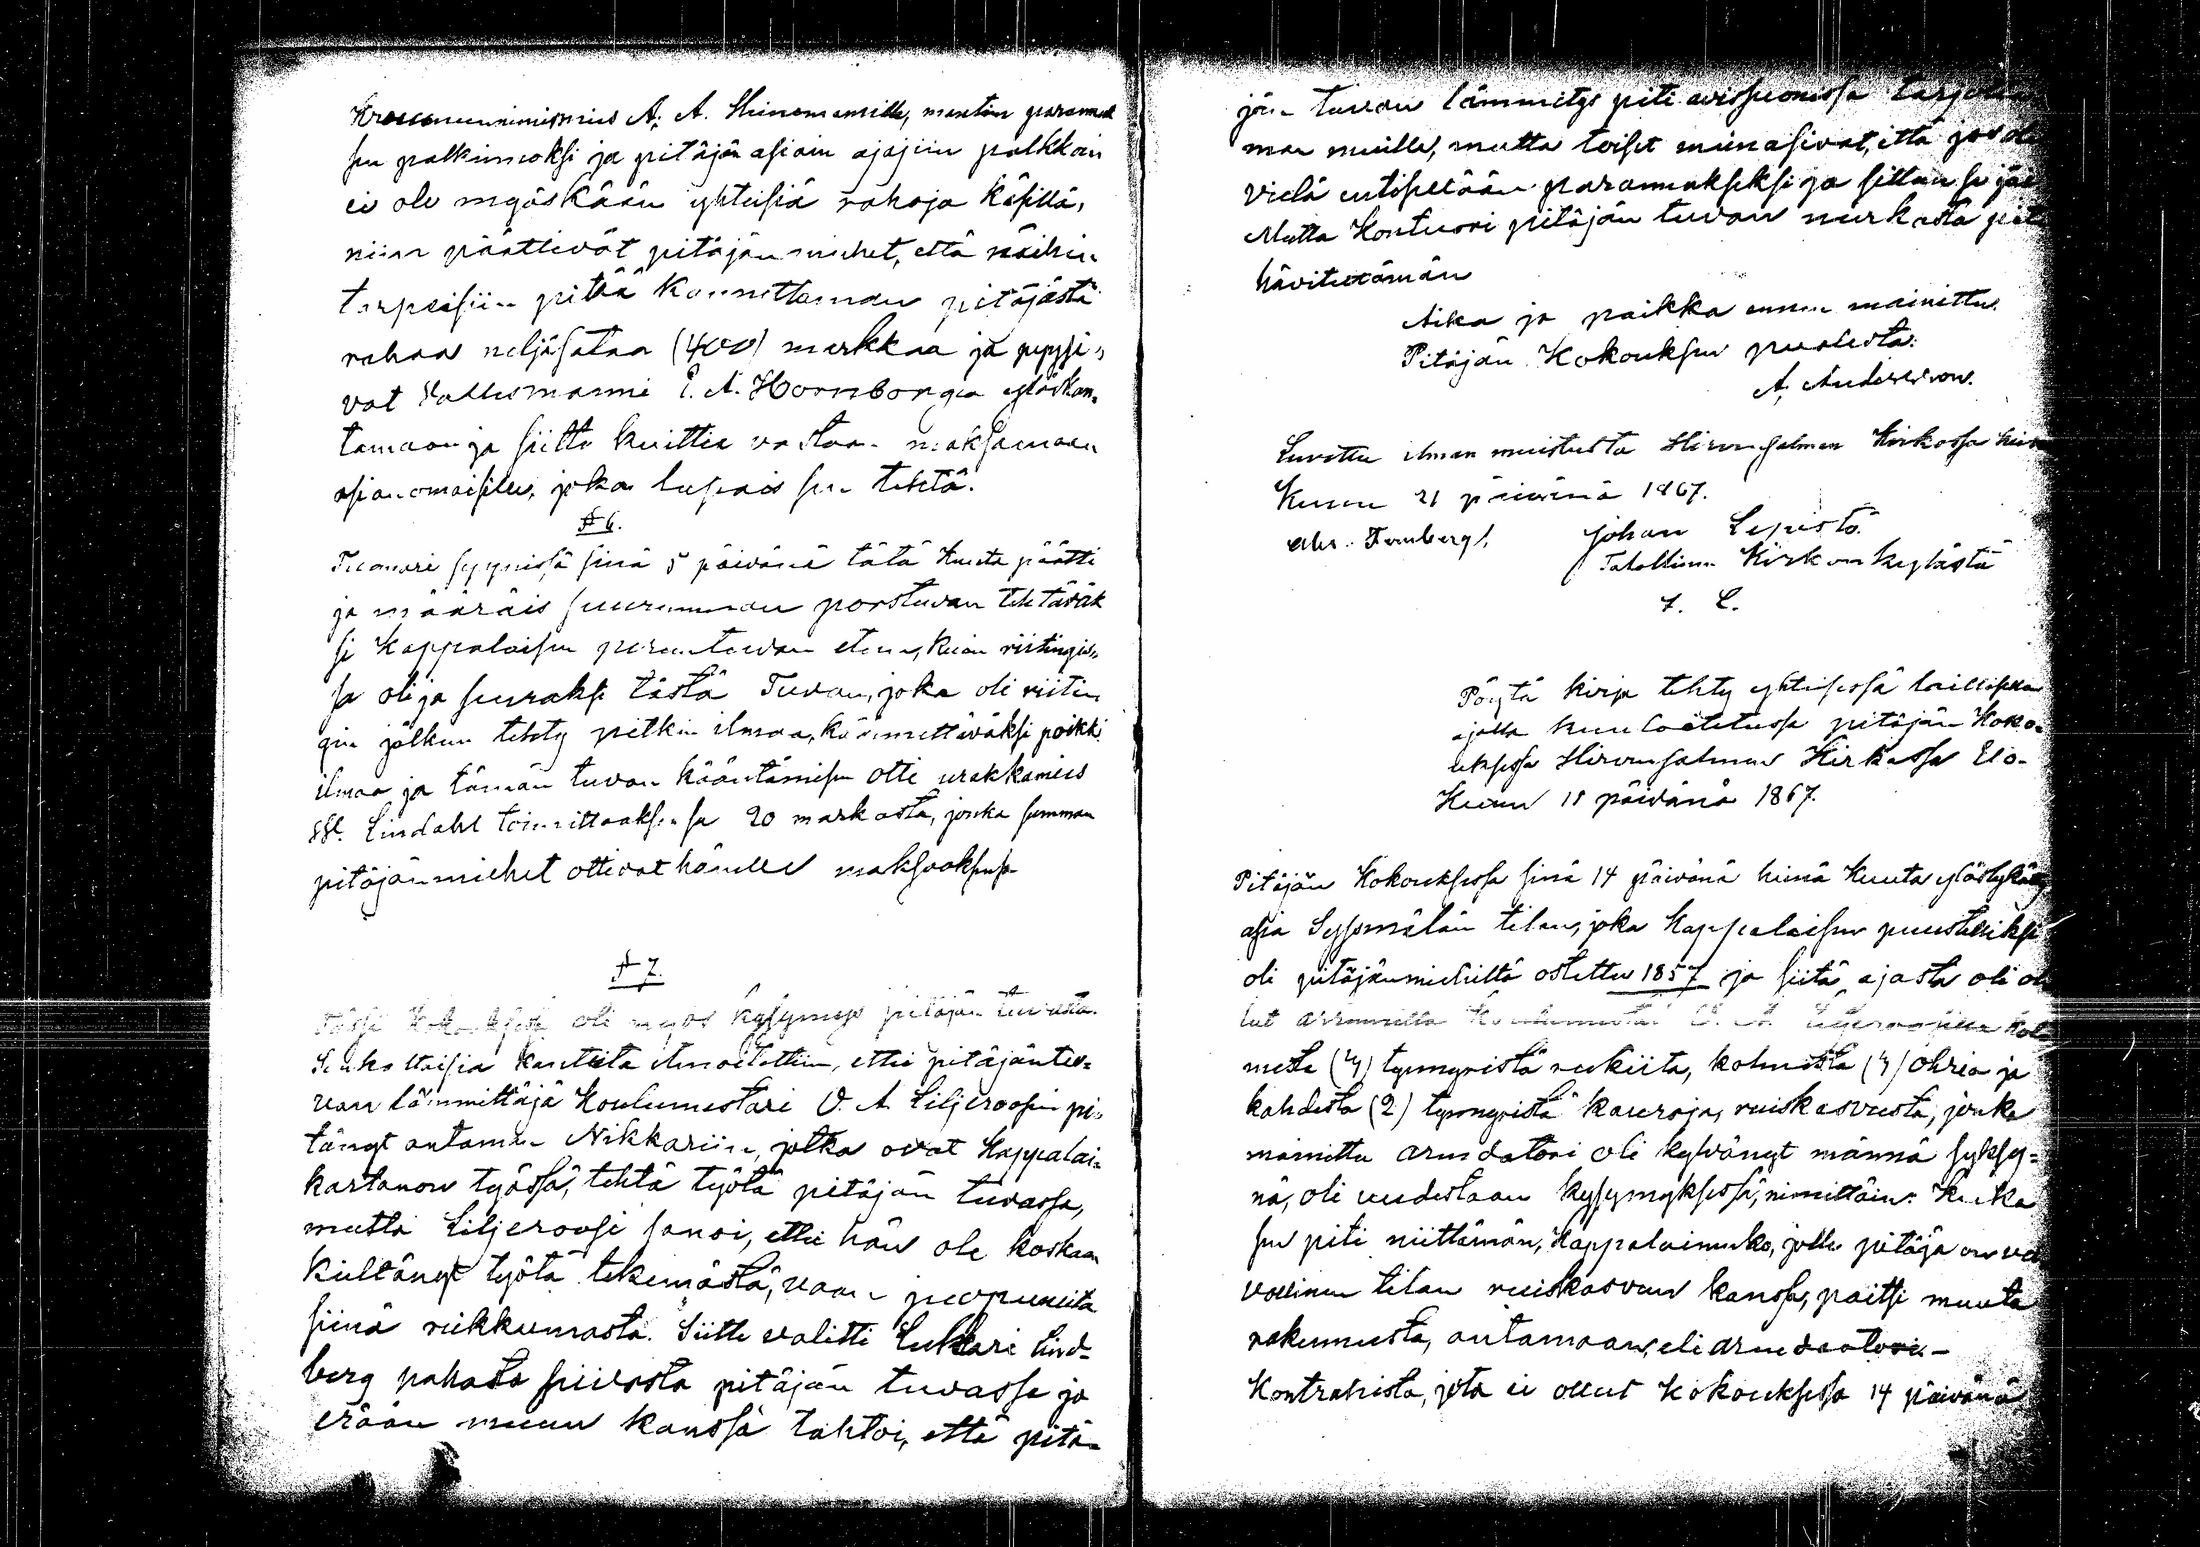 Kruununnimismies A. A. Heinemanille, manten parannuk
sen palkinnoksi ja pitäjän asiain ajajiin palkkoin
ei ole myöskään yhteisiä rahoja käsillä,
niin päättivät pitäjän miehet, että näihin
tarpeisiin pitää kannettaman pitäjästä
rahaa neljäsataa (400) markkaa ja pyysi-
vat Vallesmanni E. A. Hornborgia ylöskan-
tamaan ja siitte kuittia vastaan maksamaan
asianomaisille, joka lupais sen tehtä.
§ 6.
Tuomari syynissä sinä 5 päivänä tätä kuuta päätti
ja määräis suuremman porstuvan tehtäväk
si Kappalaisen perentuvan eteen, kuin riitingis-
sä oli ja suuraksi tästä Tuvan, joka oli riitin
gin jälkeen tehty pitkin ilmaa, käännettäväksi poikki
ilmaa ja tämän tuvan kääntämisen otti urakkamies
Lindahl toimittaaksensa 20 markasta, jonka summan
pitäjänmiehet ottivat hänelle maksaaksensa
§ 7.
Tässä Kokouksessa oli myös kysymys pitäjän tuvasta.
Seikottaisia kanteita ilmoitettiin, ettei pitäjäntu-
van lämmittäjä Koulumestari O. A. Liljeroosin pi-
tängt antaman Nikkariin, jotka ovat Kappalai-
kartanon työssä, tehtä työtä pitäjän tuvassa,
mutta Liljeroosi sanoi, ettei hän ole koskaan
kieltänyt työtä tekemästä, vaan juopuneita
siinä riikkumasta. Siitte valitti Lukkari Lind-
berg pahasta siivosta pitäjän tuvassa ja
erään muun kanssa tahtoi, että pitä-
jän tuvan lämmitys piti avissuonissa
man muille, mutta toiset miinasivat, että jos
vielä entisellään parannukseksi ja sittan se jää
Matta Kontuori pitäjän tuvan nurkasta
hävitettämän
Aika ja paikka ennen mainittu.
Pitäjän Kokouksen puolesta:
A. Andersson.
Luvettu ilman muistusta Hirvensalmen Kirkossa hein
Kuun 21 päivänä 1867.
Johan Lepistö.
Talollinen Kirkonkylästä
Pöytä kirja tehty yhteisessä laillisella
ajalla kuuloitetussa pitäjän Koko-
uksessa Hirvensalmen Kirkossa Elo-
Kuun 18 päivänä 1867.
Pitäjän Kokouksessa sinä 14 päivänä heinä Kuuta ylöslykätty
asia Syssmälän tilan, joka Kappalaisen puustelliksi
oli pitäjänmiehiltä ostettu 1857 ja siitä ajasta oli ol
lut arrennilla Koulumestari O. A. Liljeroosilla kol
mesta (3) tynnyristä rukiita, kolmesta (3) Ohria ja
kahdesta (2) tynnyristä kauroja, ruiskasvusta, jonka
mainittu arendatori oli kylvänyt männä syksy-
nä, oli uudestaan kysymyksessä, nimittäin: kuka
sen piti niittämän, Kappalainenko, jolle pitäjä on vel
vollinen tilan ruiskasvun kanssa, paitsi muuta
rakennusta, antamaan, eli arendaatori-
Kontrahista, jota ei ollut Kokouksessa 14 päivänä